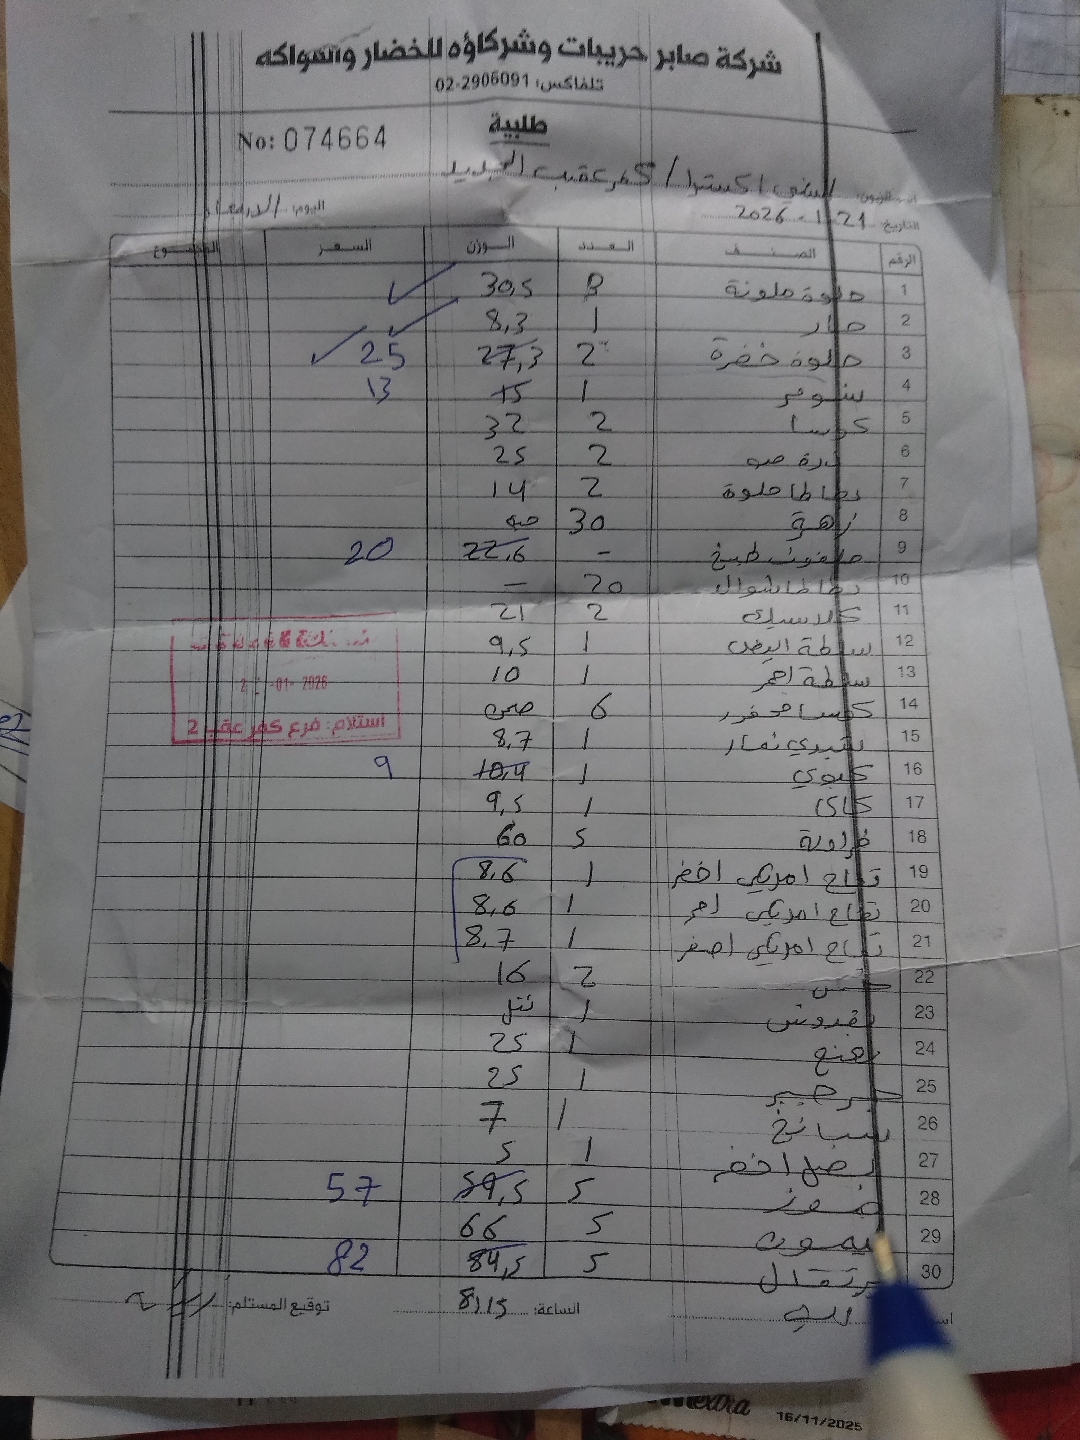 شركة صابر حريبات وشركاؤه للخضار والفواكه
تلفاكس: 02-2906091
طلبية
No: 074664
السني اكسترا / كفرعقب الجديد
اليوم: الاربعاء
التاريخ: 2026-1-21
الرقم الصنف العدد الوزن السعر المجموع
1 حلوة ملونة 3 30,5
2 حار 1 8,3
3 حلوة خضرة 2 27,3 25
4 شومر 1 15 13
5 كوسا 2 32
6 ذرة حبه 2 25
7 بطاطا حلوة 2 14
8 زهرة 30 حبه
9 ملفوف طبيخ - 22,6 20
10 بطاطا شوال 20 -
11 كلاسيك 2 21
12 سلطة ابيض 1 9,5
13 سلطة احمر 1 10
14 كوسا محفور 6 صحن
15 1 8,7
16 كيوي 1 10,4 9
17 كاكا 1 9,5
18 فراولة 5 60
19 تفاح امريكي اخضر 1 8,6
20 تفاح امريكي احمر 1 8,6
21 تفاح امريكي اصفر 1 8,7
22 خس 2 16
23 بقدونس 1
24 نعنع 1 25
25 جرجير 1 25
26 سبانخ 1 7
27 بصل اخضر 1 5
28 موز 5 59,5 57
29 ليمون 5 66
30 برتقال 5 84,5 82
الساعة: 8,15
توقيع المستلم:
-01- 2026
استلام: فرع كفر عقب 2
16/11/2025